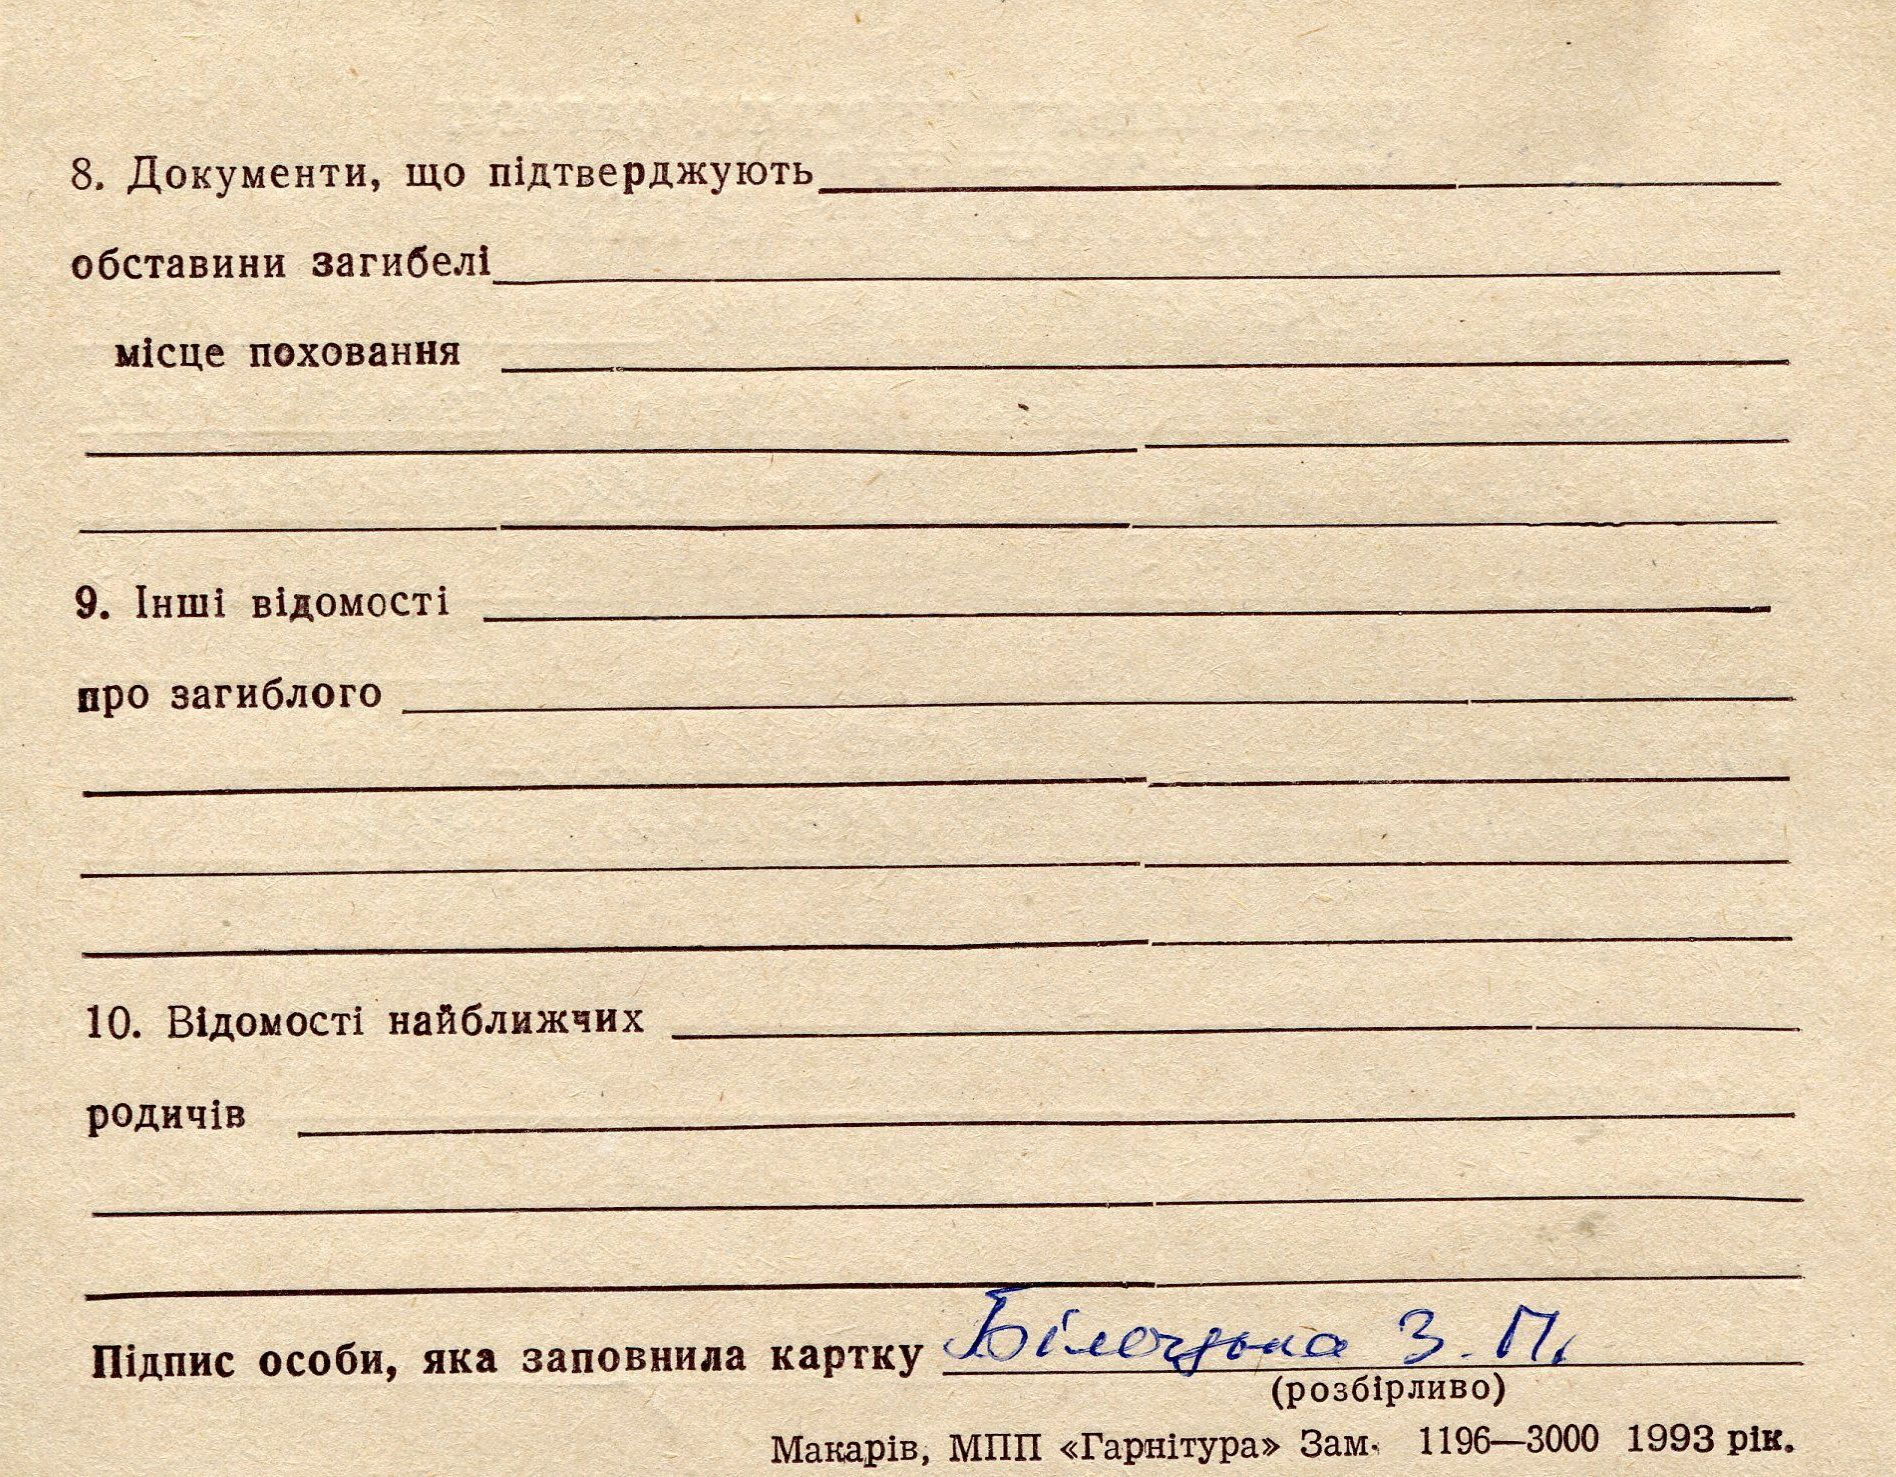 8. Документи, що підтверджують
обставини загибелі
місце поховання
9. Інші відомості
про загиблого
10. Відомості найближчих
родичів
Підпис особи, яка заповнила картку Білоцька З. П.
(розбірливо)
Макарів, МПП «Гарнітура» Зам. 1196—3000 1993 рік.